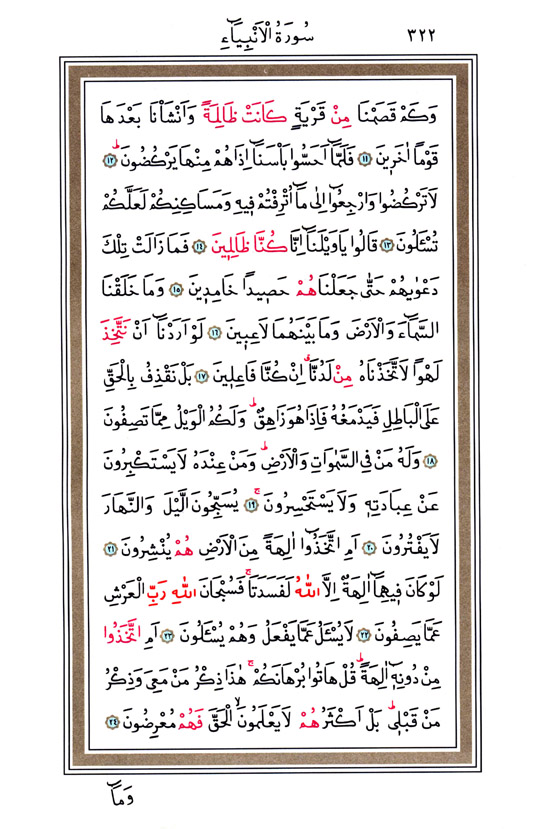 ٣٢٢ سُورَةُ الْاَنْبِيَاءِ
وَكَمْ قَصَمْنَا مِنْ قَرْيَةٍ كَانَتْ ظَالِمَةً وَاَنْشَأْنَا بَعْدَهَا
قَوْمًا اٰخَرٖينَ ﴿١١﴾ فَلَمَّٓا اَحَسُّوا بَأْسَنَٓا اِذَا هُمْ مِنْهَا يَرْكُضُونَۜ ﴿١٢﴾
لَا تَرْكُضُوا وَارْجِعُٓوا اِلٰى مَٓا اُتْرِفْتُمْ فٖيهِ وَمَسَاكِنِكُمْ لَعَلَّكُمْ
تُسْـَٔلُونَ ﴿١٣﴾ قَالُوا يَا وَيْلَنَٓا اِنَّا كُنَّا ظَالِمٖينَ ﴿١٤﴾ فَمَا زَالَتْ تِلْكَ
دَعْوٰيهُمْ حَتّٰى جَعَلْنَاهُمْ حَصٖيدًا خَامِدٖينَ ﴿١٥﴾ وَمَا خَلَقْنَا
السَّمَٓاءَ وَالْاَرْضَ وَمَا بَيْنَهُمَا لَاعِبٖينَ ﴿١٦﴾ لَوْ اَرَدْنَٓا اَنْ نَتَّخِذَ
لَهْوًا لَاتَّخَذْنَاهُ مِنْ لَدُنَّاۗ اِنْ كُنَّا فَاعِلٖينَ ﴿١٧﴾ بَلْ نَقْذِفُ بِالْحَقِّ
عَلَى الْبَاطِلِ فَيَدْمَغُهُ فَاِذَا هُوَ زَاهِقٌۜ وَلَكُمُ الْوَيْلُ مِمَّا تَصِفُونَ
﴿١٨﴾ وَلَهُ مَنْ فِي السَّمٰوَاتِ وَالْاَرْضِۜ وَمَنْ عِنْدَهُ لَا يَسْتَكْبِرُونَ
عَنْ عِبَادَتِهٖ وَلَا يَسْتَحْسِرُونَۚ ﴿١٩﴾ يُسَبِّحُونَ الَّيْلَ وَالنَّهَارَ
لَا يَفْتُرُونَ ﴿٢٠﴾ اَمِ اتَّخَذُٓوا اٰلِهَةً مِنَ الْاَرْضِ هُمْ يُنْشِرُونَ ﴿٢١﴾
لَوْ كَانَ فٖيهِمَٓا اٰلِهَةٌ اِلَّا اللّٰهُ لَفَسَدَتَاۚ فَسُبْحَانَ اللّٰهِ رَبِّ الْعَرْشِ
عَمَّا يَصِفُونَ ﴿٢٢﴾ لَا يُسْـَٔلُ عَمَّا يَفْعَلُ وَهُمْ يُسْـَٔلُونَ ﴿٢٣﴾ اَمِ اتَّخَذُوا
مِنْ دُونِهٖٓ اٰلِهَةًۜ قُلْ هَاتُوا بُرْهَانَكُمْۚ هٰذَا ذِكْرُ مَنْ مَعِيَ وَذِكْرُ
مَنْ قَبْلٖيۜ بَلْ اَكْثَرُهُمْ لَا يَعْلَمُونَۙ الْحَقَّ فَهُمْ مُعْرِضُونَ ﴿٢٤﴾
وَمَٓا